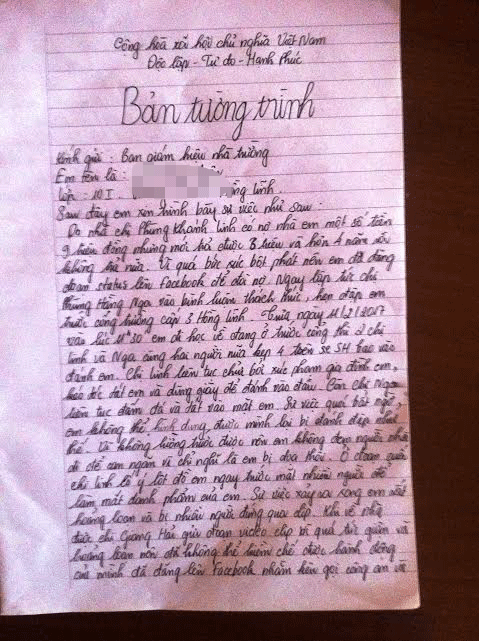 Cộng hòa xã hội chủ nghĩa Việt Nam
Độc lập - Tự do - Hạnh Phúc
Bản tường trình
Kính gửi : Ban giám hiệu nhà trường
Em tên là :
Lớp : 10I Hồng Lĩnh.
Sau đây em xin trình bày sự việc như sau :
Do nhà chị Phùng Khánh Linh có nợ nhà em một số tiền
9 triệu đồng nhưng mới trả được 3 triệu và hơn 1 năm rồi
không trả nữa. Vì quá bức xúc bột phát nên em đã đăng
đoạn status lên Facebook để đòi nợ. Ngay lập tức chị
Phùng Hằng Nga vào bình luận thách thức, hẹn đập em
trước cổng trường cấp 3 Hồng Lĩnh. Trưa ngày 11/2/2017
vào lúc 11h30 em đi học về đang ở trước cổng thì 2 chị
Linh và Nga cùng hai người nữa kẹp 4 trên xe SH lao vào
đánh em. Chị Linh liên tục chửi bới xúc phạm gia đình em,
kéo tóc tát em và dùng giày để đánh vào đầu. Còn chị Nga
liên tục đấm đá và tát vào mặt em. Sự việc quá bất ngờ
em không thể hình dung được mình lại bị đánh đập như
thế. Và không lường trước được nên em không đem người nhà
đi để can ngăn vì chỉ nghĩ là em bị dọa thôi. Ở đoạn quần
chị Linh cố ý lột đồ em ngay trước mặt nhiều người để
làm mất danh phẩm của em. Sự việc xảy ra xong em rất
hoang loạn và bị nhiều người đứng quay clip. Khi về nhà
được chị Giang Hải gửi đoạn video clip vì quá tức giận và
hoang loạn nên đã không thể kiềm chế được hành động
của mình đã đăng lên Facebook nhằm kêu gọi công an và